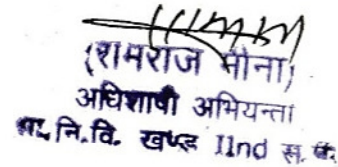 (रामराज मीना)
अधिशाषी अभियन्ता
सा. नि. वि. खण्ड IInd स. मा.